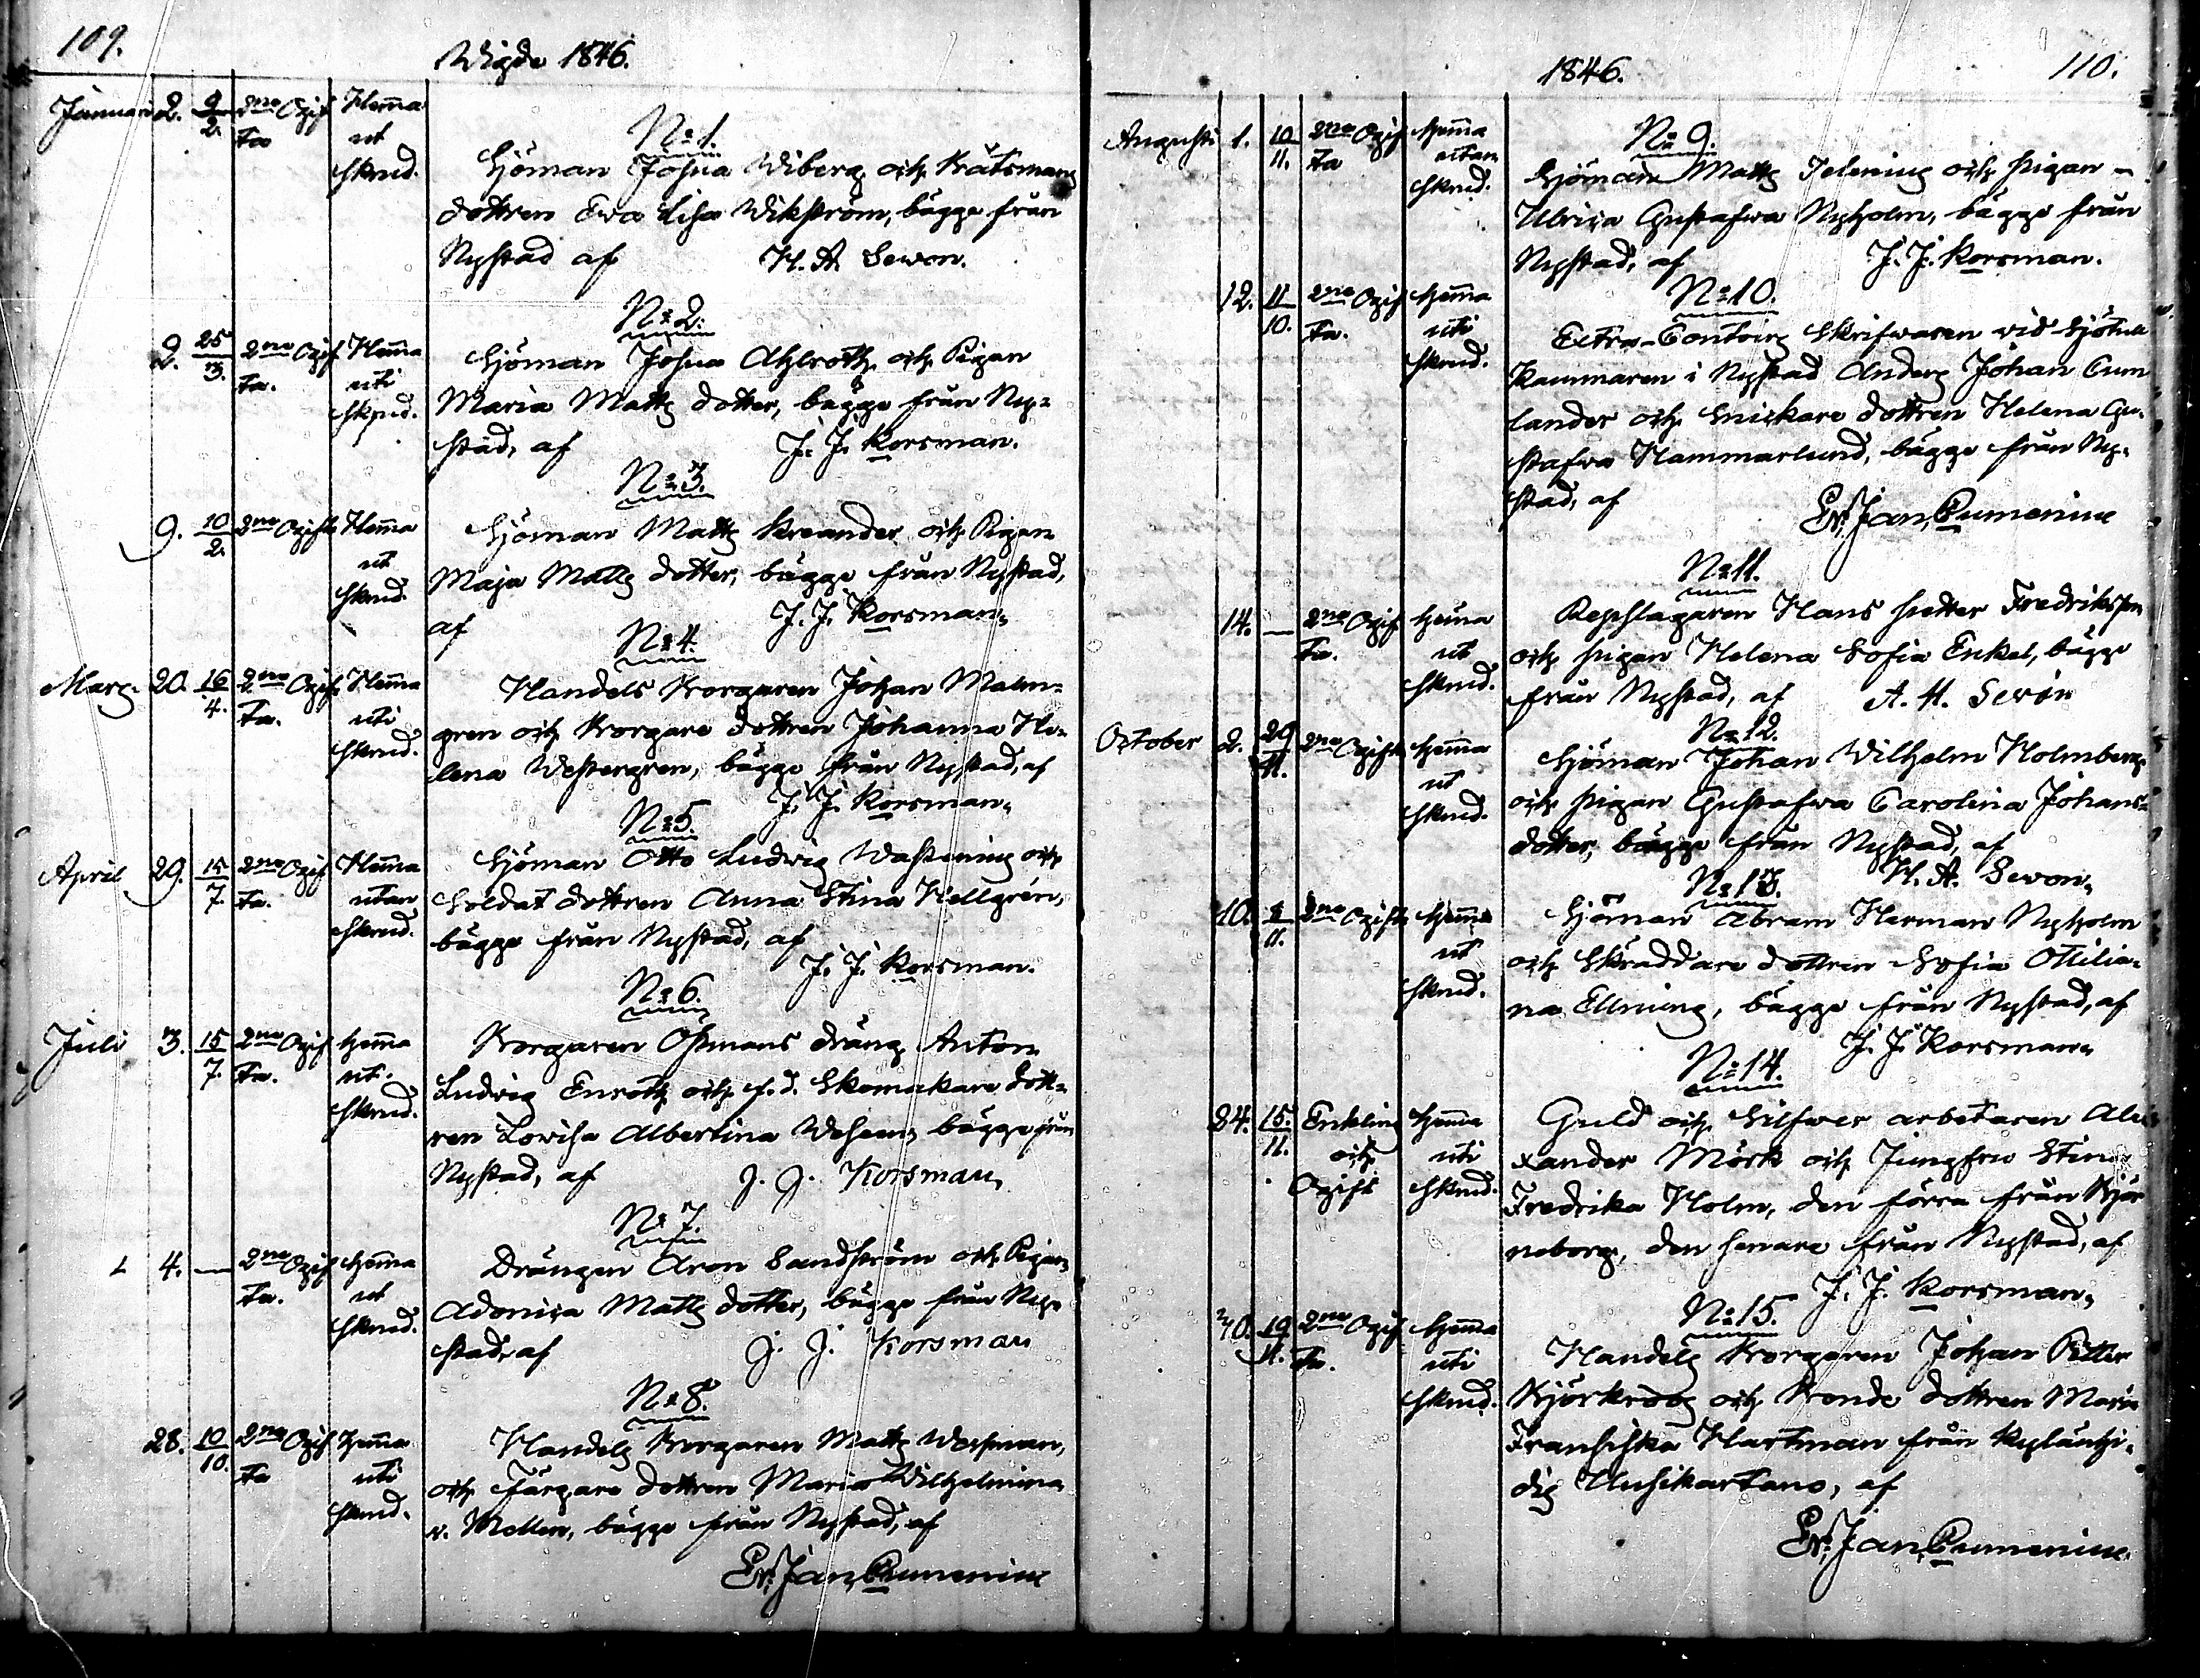 109.
Wigde 1846.
Januari 2. 9/2. 2ne Ogif
ta
Hema
ut
skrud.
No 1.
Sjöman Josua Wiberg och Båtsmans
dottren Eva Lisa Wikström, bägge från
Nystad af H. A. Sevon.
2. 25/3. 2ne Ogif
ta.
Hema
uti
skrud.
No 2.
Sjöman Josua Ahlroth och Pigan
Maria Matts dotter, bägge från Ny-
stad, af J. J. Korsman.
9. 10/2. 2ne Ogifta
Hema
ut
skrud.
No 3.
Sjöman Matts Kreander och Pigan
Maja Matts dotter, bägge från Nystad,
af J. J. Korsman.
Mars 20. 16/4. 2ne Ogif
ta.
Hema
uti
skrud.
No 4.
Handels Borgaren Johan Malm-
gren och Borgare dottren Johanna He-
lena Westergren, bägge från Nystad, af
J. J. Korsman.
April 29. 15/7. 2ne Ogif
ta.
Hema
utan
skrud.
No 5.
Sjöman Otto Ludvig Wastenius och
Soldat dottren Anna Stina Hellgrén,
bägge från Nystad, af
J. J. Korsman.
Juli 3. 15/7. 2ne Ogif
ta.
hema
ut.
skrud.
No 6.
Borgaren Östmans dräng Anton
Ludvig Enroth och f.d. Skomakare dott-
ren Lovisa Albertina bägge från
Nystad, af J. J. Korsman,
4. — 2ne Ogif
ta.
hema
ut
skrud.
No 7.
Drängen Aron Sandström och Pigan
Adonica Matts dotter, bägge från Ny-
stad, af J. J. Korsman
28. 10/10. 2ne Ogif
ta
hema
uti
skrud.
No 8.
Handels Borgaren Matts
och Färgare dottren Maria Wilhelmina
v. Mollen, bägge från Nystad, af
Er. Jan. Cumenius
1846.
110.
Augusti 1. 10/11. 2ne Ogif
ta
hema
utan
skrud.
No 9.
Sjöman Matts Selenius och pigan –
Ulrica Gustafva Nyholm, bägge från
Nystad, af J. J. Korsman.
12. 11/10. 2ne Ogif
ta.
hema
uti
skrud.
No 10.
Extra-Contoirs Skrifvaren vid Sjötull
kammaren i Nystad Anders Johan Cum
lander och Snickare dottren Helena Gu-
stafva Hammarlund, bägge från Ny-
stad, af
Er. Jan. Cumenius
14. — 2ne Ogif
ta.
hema
ut
skrud.
No 11.
Repslagaren Hans petter Fredriksson
och pigan Helena Sofia Enkel, bägge
från Nystad, af A. H. Sevón
October 2. 29/11. 2ne Ogifta
hema
ut
skrud.
No 12.
Sjöman Johan Wilhelm Holmberg
och pigan Gustafva Carolina Johans-
dotter, bägge från Nystad, af
H. A. Sevon.
10. 11. 2ne Ogifta
hema
ut
skrud.
No 13.
Sjöman Abram Herman Nyholm
och Skräddare dottren Sofia Otilia-
na Ellning, bägge från Nystad, af
J. J. Korsman.
24. 15/11. Enkling
och
Ogift
hema
uti
skrud.
No 14.
Guld och Silfver arbetaren Ale
xander Mörk och Jungfru Stina
Fredrika Holm, den förra från Björ
neborg, den senare från Nystad, af
J. J. Korsman,
30. 19/11. 2ne Ogif
ta.
hema
uti
skrud.
No 15.
Handels Borgaren Johan Petter
Björkroos och Bonde dottren Maria
Fransiska Hartman från
Uusikartano, af
Er. Jan. Cumenius.